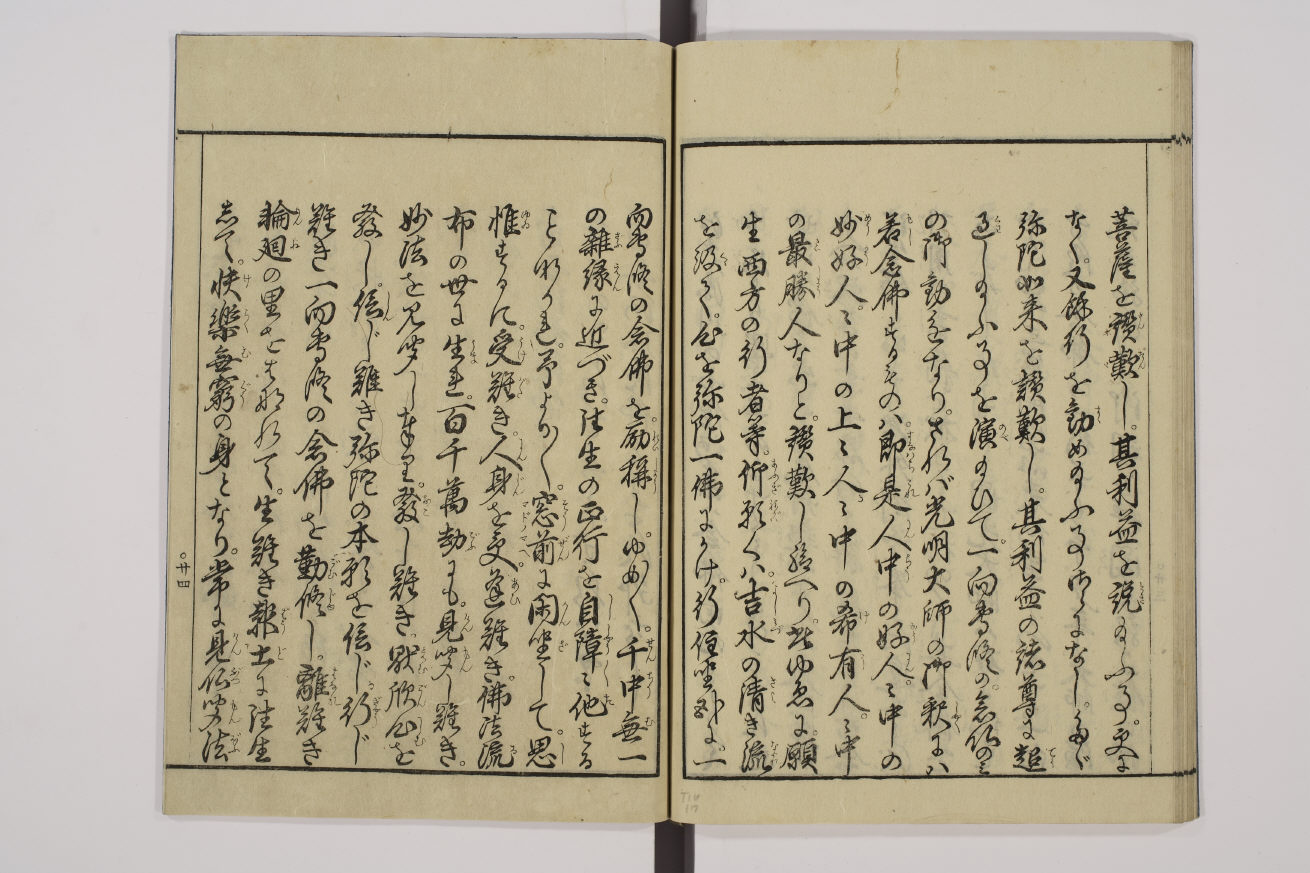 菩薩を讃歎し。其利益を説給ふ事。更に
なく。又餘行を勧め給ふ事御さになし。たゞ
弥陀如来を讃歎し。其利益の諸尊に超
過し給ふ事を演給ひて。一向専修の念仏のミ
の御勧をなり。されバ光明大師の御釈にハ
若念佛するものハ。即是人中の好人〻中の
妙好人〻中の上〻人〻中の希有人。〻中
の最勝人なりと。讃歎し給へり。然ゆゑに。願
生西方の行者等。仰願くハ。吉水の清き流
を汲て。心を弥陀一佛にかけ。行住坐臥に。一
向専修の念佛を。励称し。ゆめ〱。千中無一
の雜縁に近づき。往生の正行を自障〻他する
ことなかれ。予よりより。窓前に閑坐して。思
惟するに。受難き。人身を受。逢難き。佛法流
布の世に生れ。百千萬劫にも。見聞し難き。
妙法を見聞し奉り。發し難き。厭欣心を
發し。信じ難き弥陀の本願を信じ。行じ
難き一向専修の念佛を勤修し。離難き
輪廻の里をはなれて。生難き報土に往生
して。快楽無窮の身となり。常に見仏聞法
○廿四